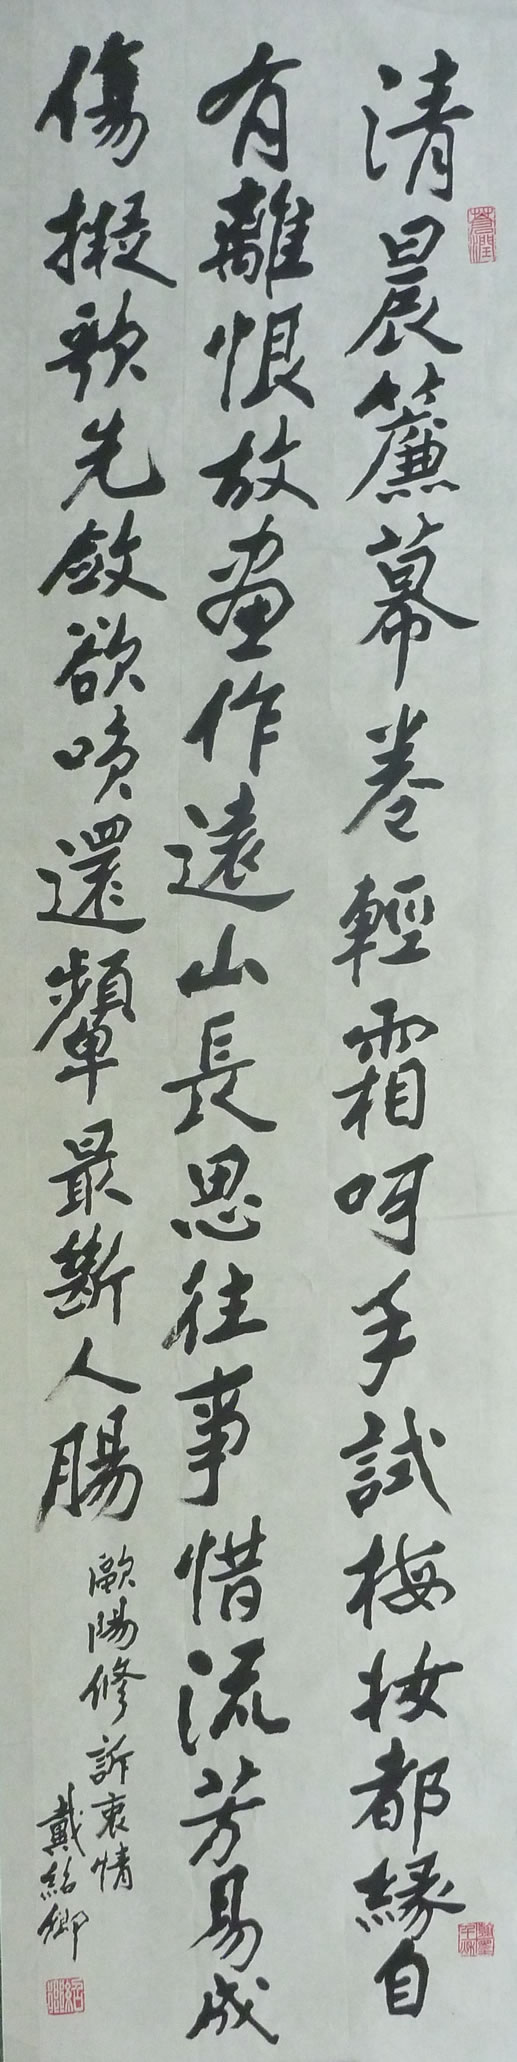 清晨簾幕卷輕霜呵手試梅妝都緣自
有離恨故畫作遠山長思往事惜流芳易成
傷擬歌先斂欲嚬還顰最斷人腸
歐陽修訴衷情
戴紹卿